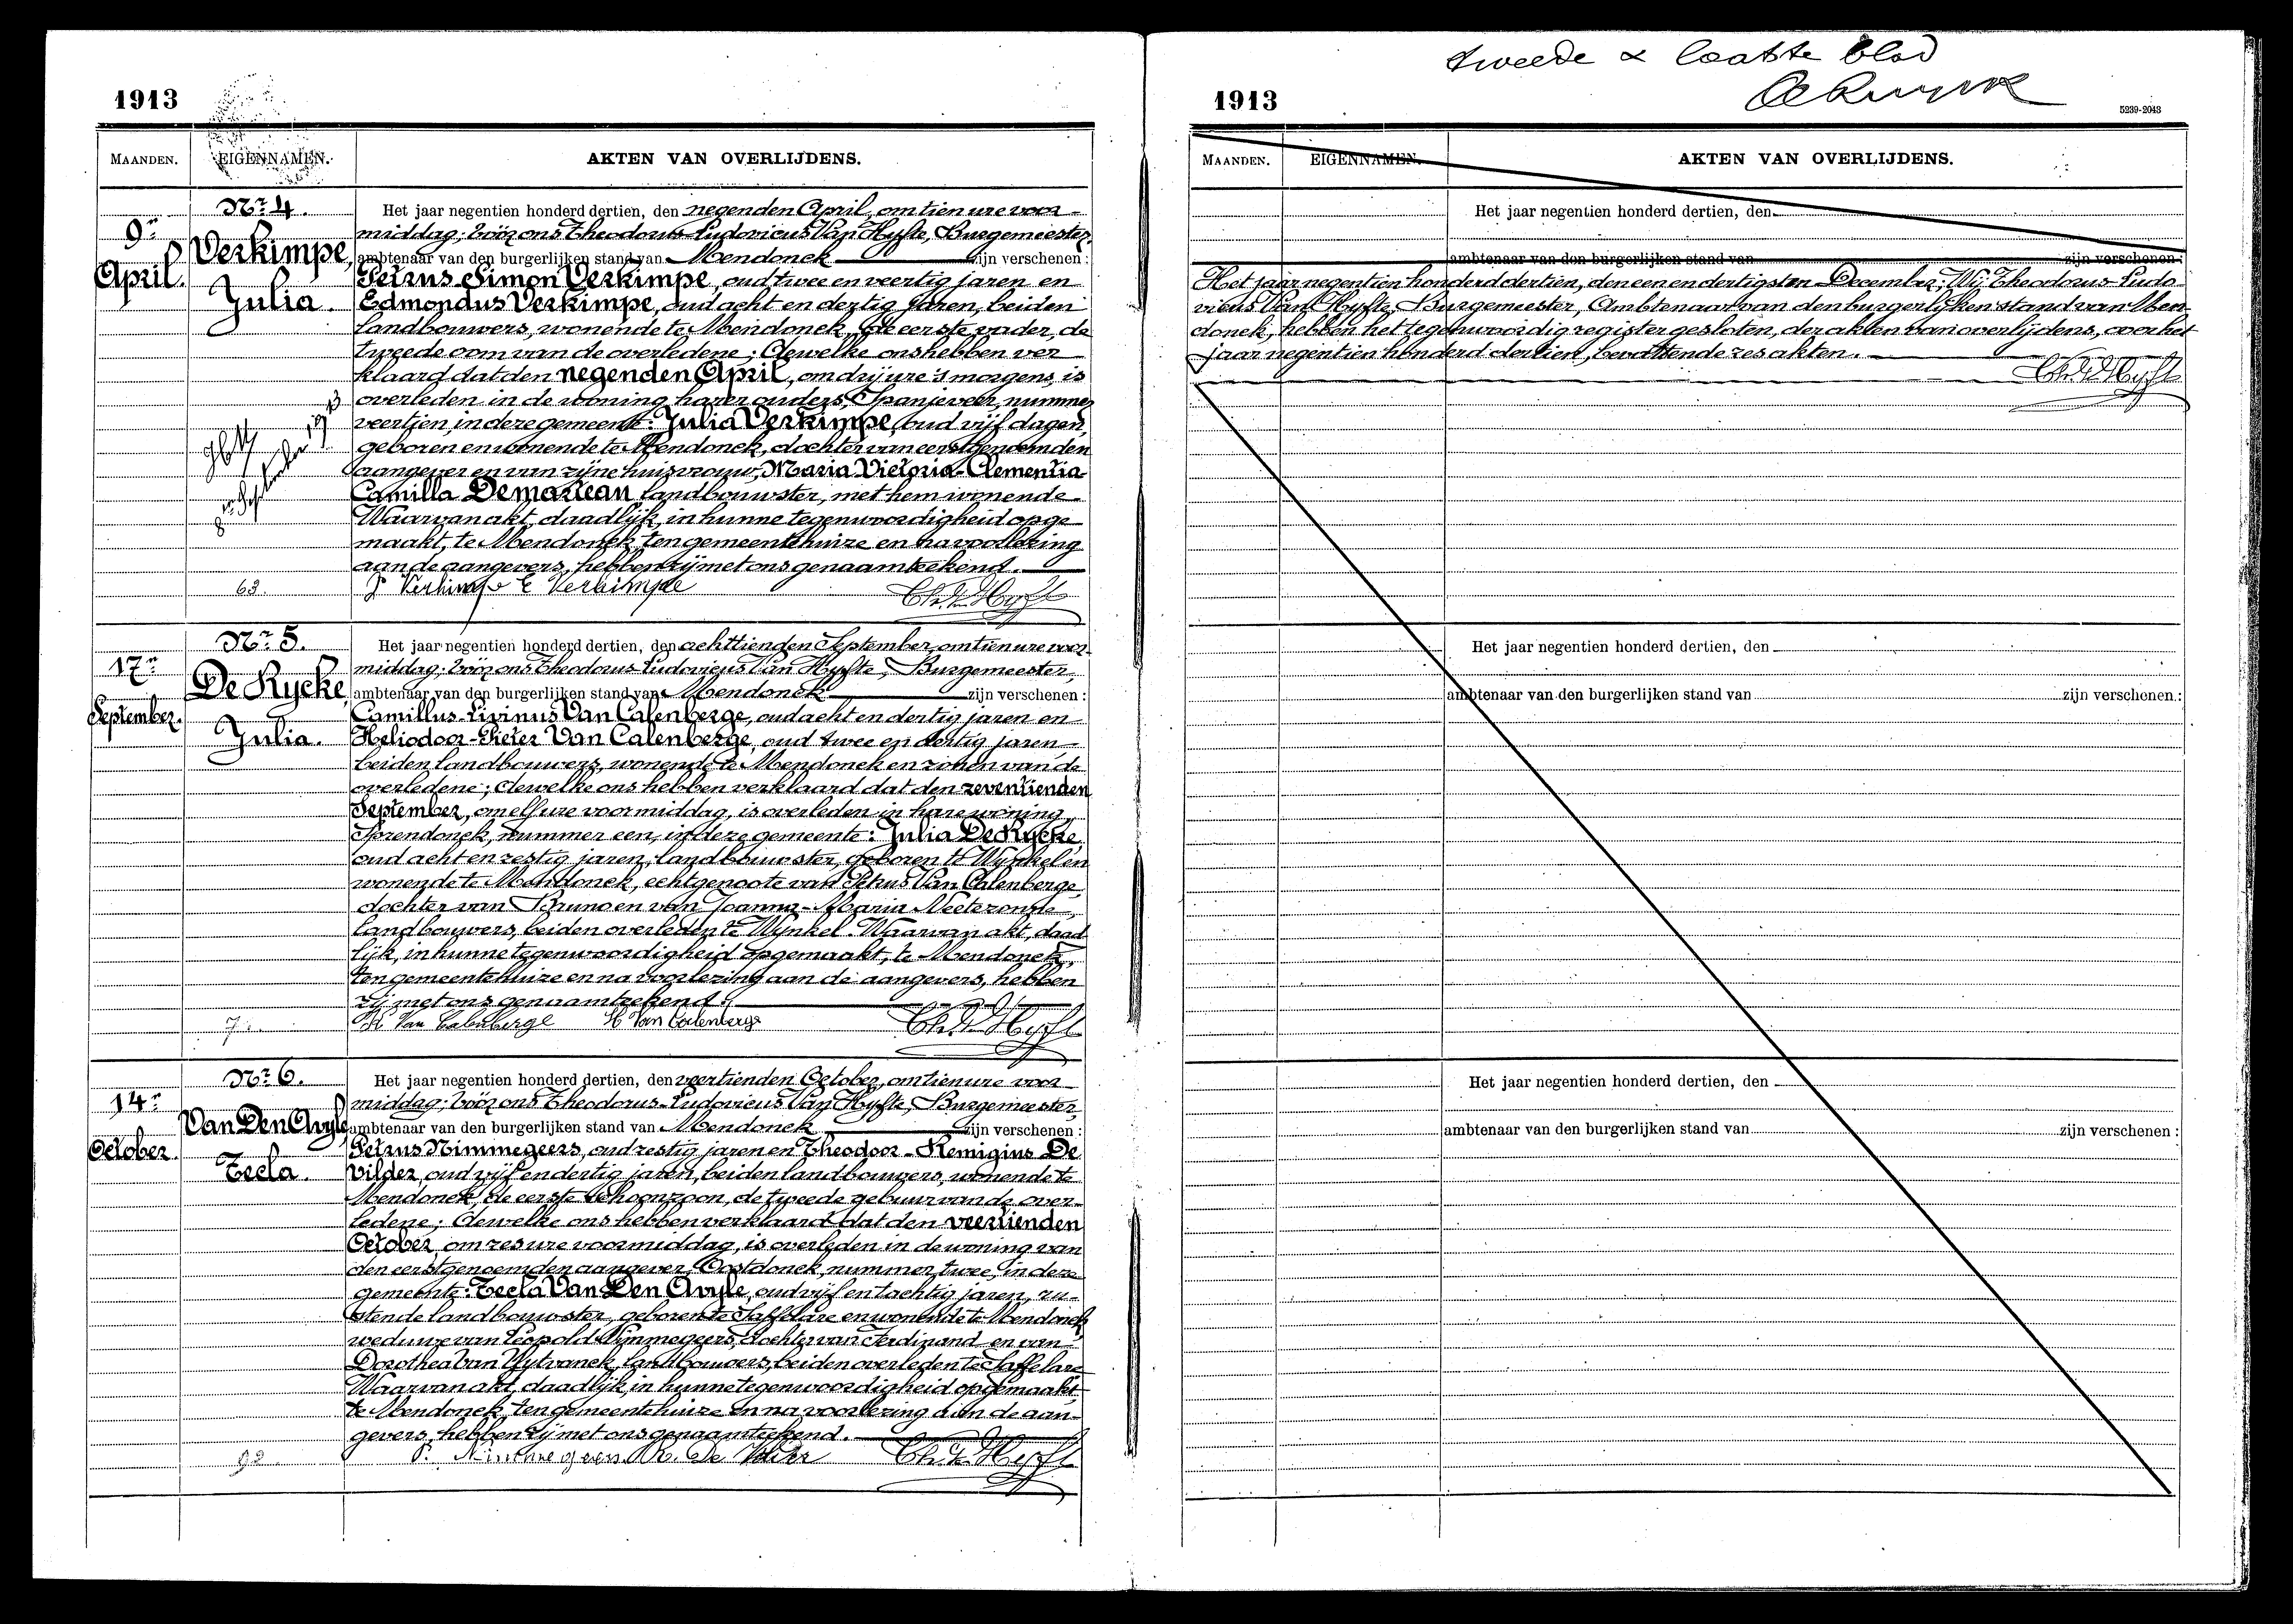 1913
MAANDEN. EIGENNAMEN. AKTEN VAN OVERLIJDENS.
Nr 4.
9n
April.
Verkimpe,
Julia.
Het jaar negentien honderd dertien, den negenden April, om tien ure voor-
middag; vóór ons Theodorus-Ludovicus Van Hyfte, Burgemeester,
ambtenaar van den burgerlijken stand van Mendonck zijn verschenen:
Petrus-Simon Verkimpe, oud twee en veertig jaren en
Edmondus Verkimpe, oud acht en dertig jaren, beiden
landbouwers, wonende te Mendonck, de eerste vader, de
tweede oom van de overledene; dewelke ons hebben ver
klaard dat den negenden April, om drij ure 's morgens, is
overleden in de woning harer ouders, Spanjeveer, nummer
veertien, in deze gemeente: Julia Verkimpe, oud vijf dagen,
geboren en wonende te Mendonck, dochter van eerstgenoemden
aangever en van zijne huisvrouw, Maria Victoria-Clementia-
Camilla Demarteau landbouwster, met hem wonende
Waarvan akt, daadlijk, in hunne tegenwoordigheid opge
maakt, te Mendonck, ten gemeentehuize en na voorlezing
aan de aangevers, hebben zij met ons genaamteekend.
8n September 1913
63.
P Verkimpe E Verkimpe
Nr 5.
17n
September.
De Rycke,
Julia.
Het jaar negentien honderd dertien, den achttienden September, om tien ure voor-
middag; vóór ons Theodorus-Ludovicus Van Hyfte, Burgemeester,
ambtenaar van den burgerlijken stand van Mendonck zijn verschenen:
Camillus-Livinus Van Calenberge, oud acht en dertig jaren en
Heliodoor-Pieter Van Calenberge, oud twee en dertig jaren,
beiden landbouwers, wonende te Mendonck en zonen van de
overledene; dewelke ons hebben verklaard dat den zeventienden
September, om elf ure voormiddag, is overleden in hare woning,
Sprendonck, nummer een, in deze gemeente: Julia De Rycke,
oud acht en zestig jaren, landbouwster, geboren te Wynkel en
wonende te Mendonck, echtgenoote van Petrus Van Calenberge,
dochter van Bruno en van Joanna-Maria Neetezonne,
landbouwers, beiden overleden te Wynkel. Waarvan akt, daad
lijk, in hunne tegenwoordigheid opgemaakt, te Mendonck,
ten gemeentehuize en na voorlezing aan de aangevers, hebben
zij met ons genaamteekend.
K. Van Calenberge H Van Calenberge
Nr 6.
14n
October.
Van Den Avyle,
Tecla.
Het jaar negentien honderd dertien, den veertienden October, om tien ure voor
middag; vóór ons Theodorus-Ludovicus Van Hyfte, Burgemeester,
ambtenaar van den burgerlijken stand van Mendonck zijn verschenen:
Petrus Nimmegeers, oud zestig jaren en Theodoor-Remigius De
Vilder, oud vijf en dertig jaren, beiden landbouwers, wonende te
Mendonck, de eerste schoonzoon, de tweede gebuur van de over-
ledene; dewelke ons hebben verklaard dat den veertienden
October, om zes ure voormiddag, is overleden in de woning van
den eerstgenoemden aangever, Oostdonck, nummer twee, in deze
gemeente: Tecla Van Den Avyle, oud vijf en tachtig jaren, ru-
stende landbouwster, geboren te Saffelare en wonende te Mendonck,
weduwe van Leopold Nimmegeers, dochter van Ferdinand en van
Dorothea Van Uytvanck, landbouwers, beiden overleden te Saffelare
Waarvan akt, daadlijk, in hunne tegenwoordigheid opgemaakt,
te Mendonck, ten gemeentehuize en na voorlezing aan de aan-
gevers, hebben zij met ons genaamteekend.
P. Nimmegeers R. De Vilder
tweede & laatste blad
1913
5239-2043
MAANDEN. EIGENNAMEN. AKTEN VAN OVERLIJDENS.
Het jaar negentien honderd dertien, den
ambtenaar van den burgerlijken stand van zijn verschenen:
Het jaar negentien honderd dertien, den een en dertigsten December; Wij Theodorus-Ludo-
vicus Van Hyfte, Burgemeester, Ambtenaar van den burgerlijken stand van Men-
donck, hebben het tegenwoordig register gesloten, der akten van overlijdens, over het
jaar negentien honderd dertien, bevattende zes akten.
Het jaar negentien honderd dertien, den
ambtenaar van den burgerlijken stand van zijn verschenen:
Het jaar negentien honderd dertien, den
ambtenaar van den burgerlijken stand van zijn verschenen: